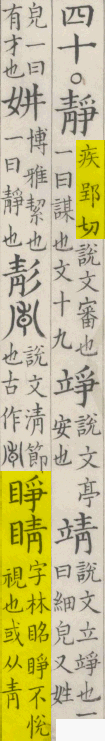 四十。靜疾郢切說文審也一曰謀也文十九竫說文亭安也靖說文立竫也一曰細皃又姓
皃一曰有才也妌博雅絜也一曰靜也說文清飾也古作睜睛字林眳睜不悅視也或从青